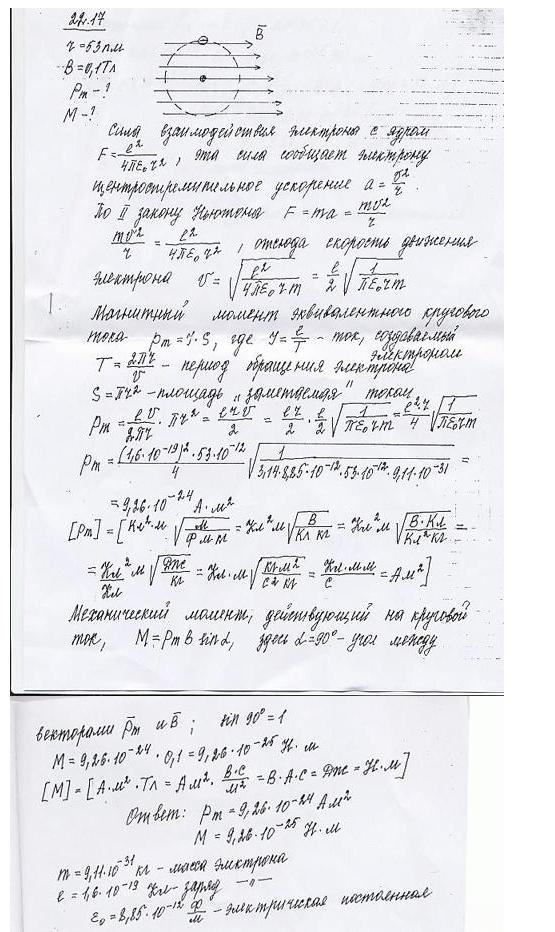 22.17
r = 53 пм
B = 0,1 Тл
Pm - ?
M - ?
B̄
Сила взаимодействия электрона с ядром
F = e²/(4πε₀r²), эта сила сообщает электрону
центростремительное ускорение a = v²/r.
По II закону Ньютона F = ma = mv²/r
mv²/r = e²/(4πε₀r²), отсюда скорость движения
электрона v = √(e²/(4πε₀rm)) = e/2 √(1/(πε₀rm))
Магнитный момент эквивалентного кругового
тока pm = I·S, где I = e/T - ток, создаваемый
электроном
T = 2πr/v - период обращения электрона
S = πr² - площадь „заметаемая" током
Pm = ev/(2πr) · πr² = erv/2 = er/2 · e/2 √(1/(πε₀rm)) = e²r/4 √(1/(πε₀rm))
Pm = (1,6·10⁻¹⁹)²·53·10⁻¹²/4 √(1/(3,14·8,85·10⁻¹²·53·10⁻¹²·9,11·10⁻³¹)) =
= 9,26·10⁻²⁴ А·м²
[Pm] = [Кл²·м √(м/(Ф м кг)) = Кл² м √(В/(Кл кг)) = Кл² м √(В·Кл/(Кл² кг)) =
= Кл²/Кл м √(Дж/кг) = Кл·м √(кг м²/(с² кг)) = Кл·м м/с = А м²]
Механический момент, действующий на круговой
ток, M = Pm B sin α, здесь α = 90° - угол между
векторами P̄m и B̄; sin 90° = 1
M = 9,26·10⁻²⁴ · 0,1 = 9,26·10⁻²⁵ Н·м
[M] = [А·м²·Тл = А м² · В·с/м² = В·А·с = Дж = Н·м]
Ответ: Pm = 9,26·10⁻²⁴ А м²
M = 9,26·10⁻²⁵ Н·м
m = 9,11·10⁻³¹ кг - масса электрона
e = 1,6·10⁻¹⁹ Кл - заряд —"—
ε₀ = 8,85·10⁻¹² Ф/м - электрическая постоянная